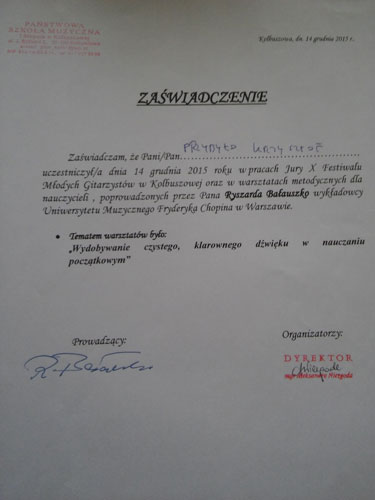 PAŃSTWOWA
SZKOŁA MUZYCZNA
Kolbuszowa, dn. 14 grudnia 2015 r.
ZAŚWIADCZENIE
Zaświadczam, że Pani/Pan PRZYBYŁO KRZYSZTOF
uczestniczył/a dnia 14 grudnia 2015 roku w pracach Jury X Festiwalu
Młodych Gitarzystów w Kolbuszowej oraz w warsztatach metodycznych dla
nauczycieli , poprowadzonych przez Pana Ryszarda Bałauszko wykładowcy
Uniwersytetu Muzycznego Fryderyka Chopina w Warszawie.
• Tematem warsztatów było:
„Wydobywanie czystego, klarownego dźwięku w nauczaniu
początkowym”
Prowadzący:
Organizatorzy:
DYREKTOR
mgr Aleksandra Niezgoda